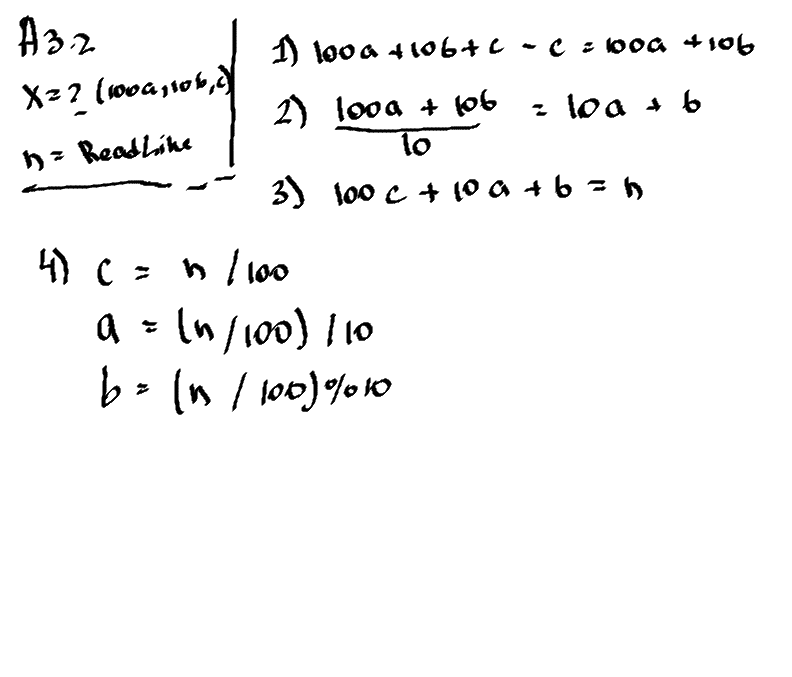 A3.2
x = ? (100a, 10b, c)
n = ReadLine
1) 100a + 10b + c - c = 100a + 10b
2) (100a + 10b) / 10 = 10a + b
3) 100c + 10a + b = n
4) c = n / 100
a = (n / 100) / 10
b = (n / 100) % 10